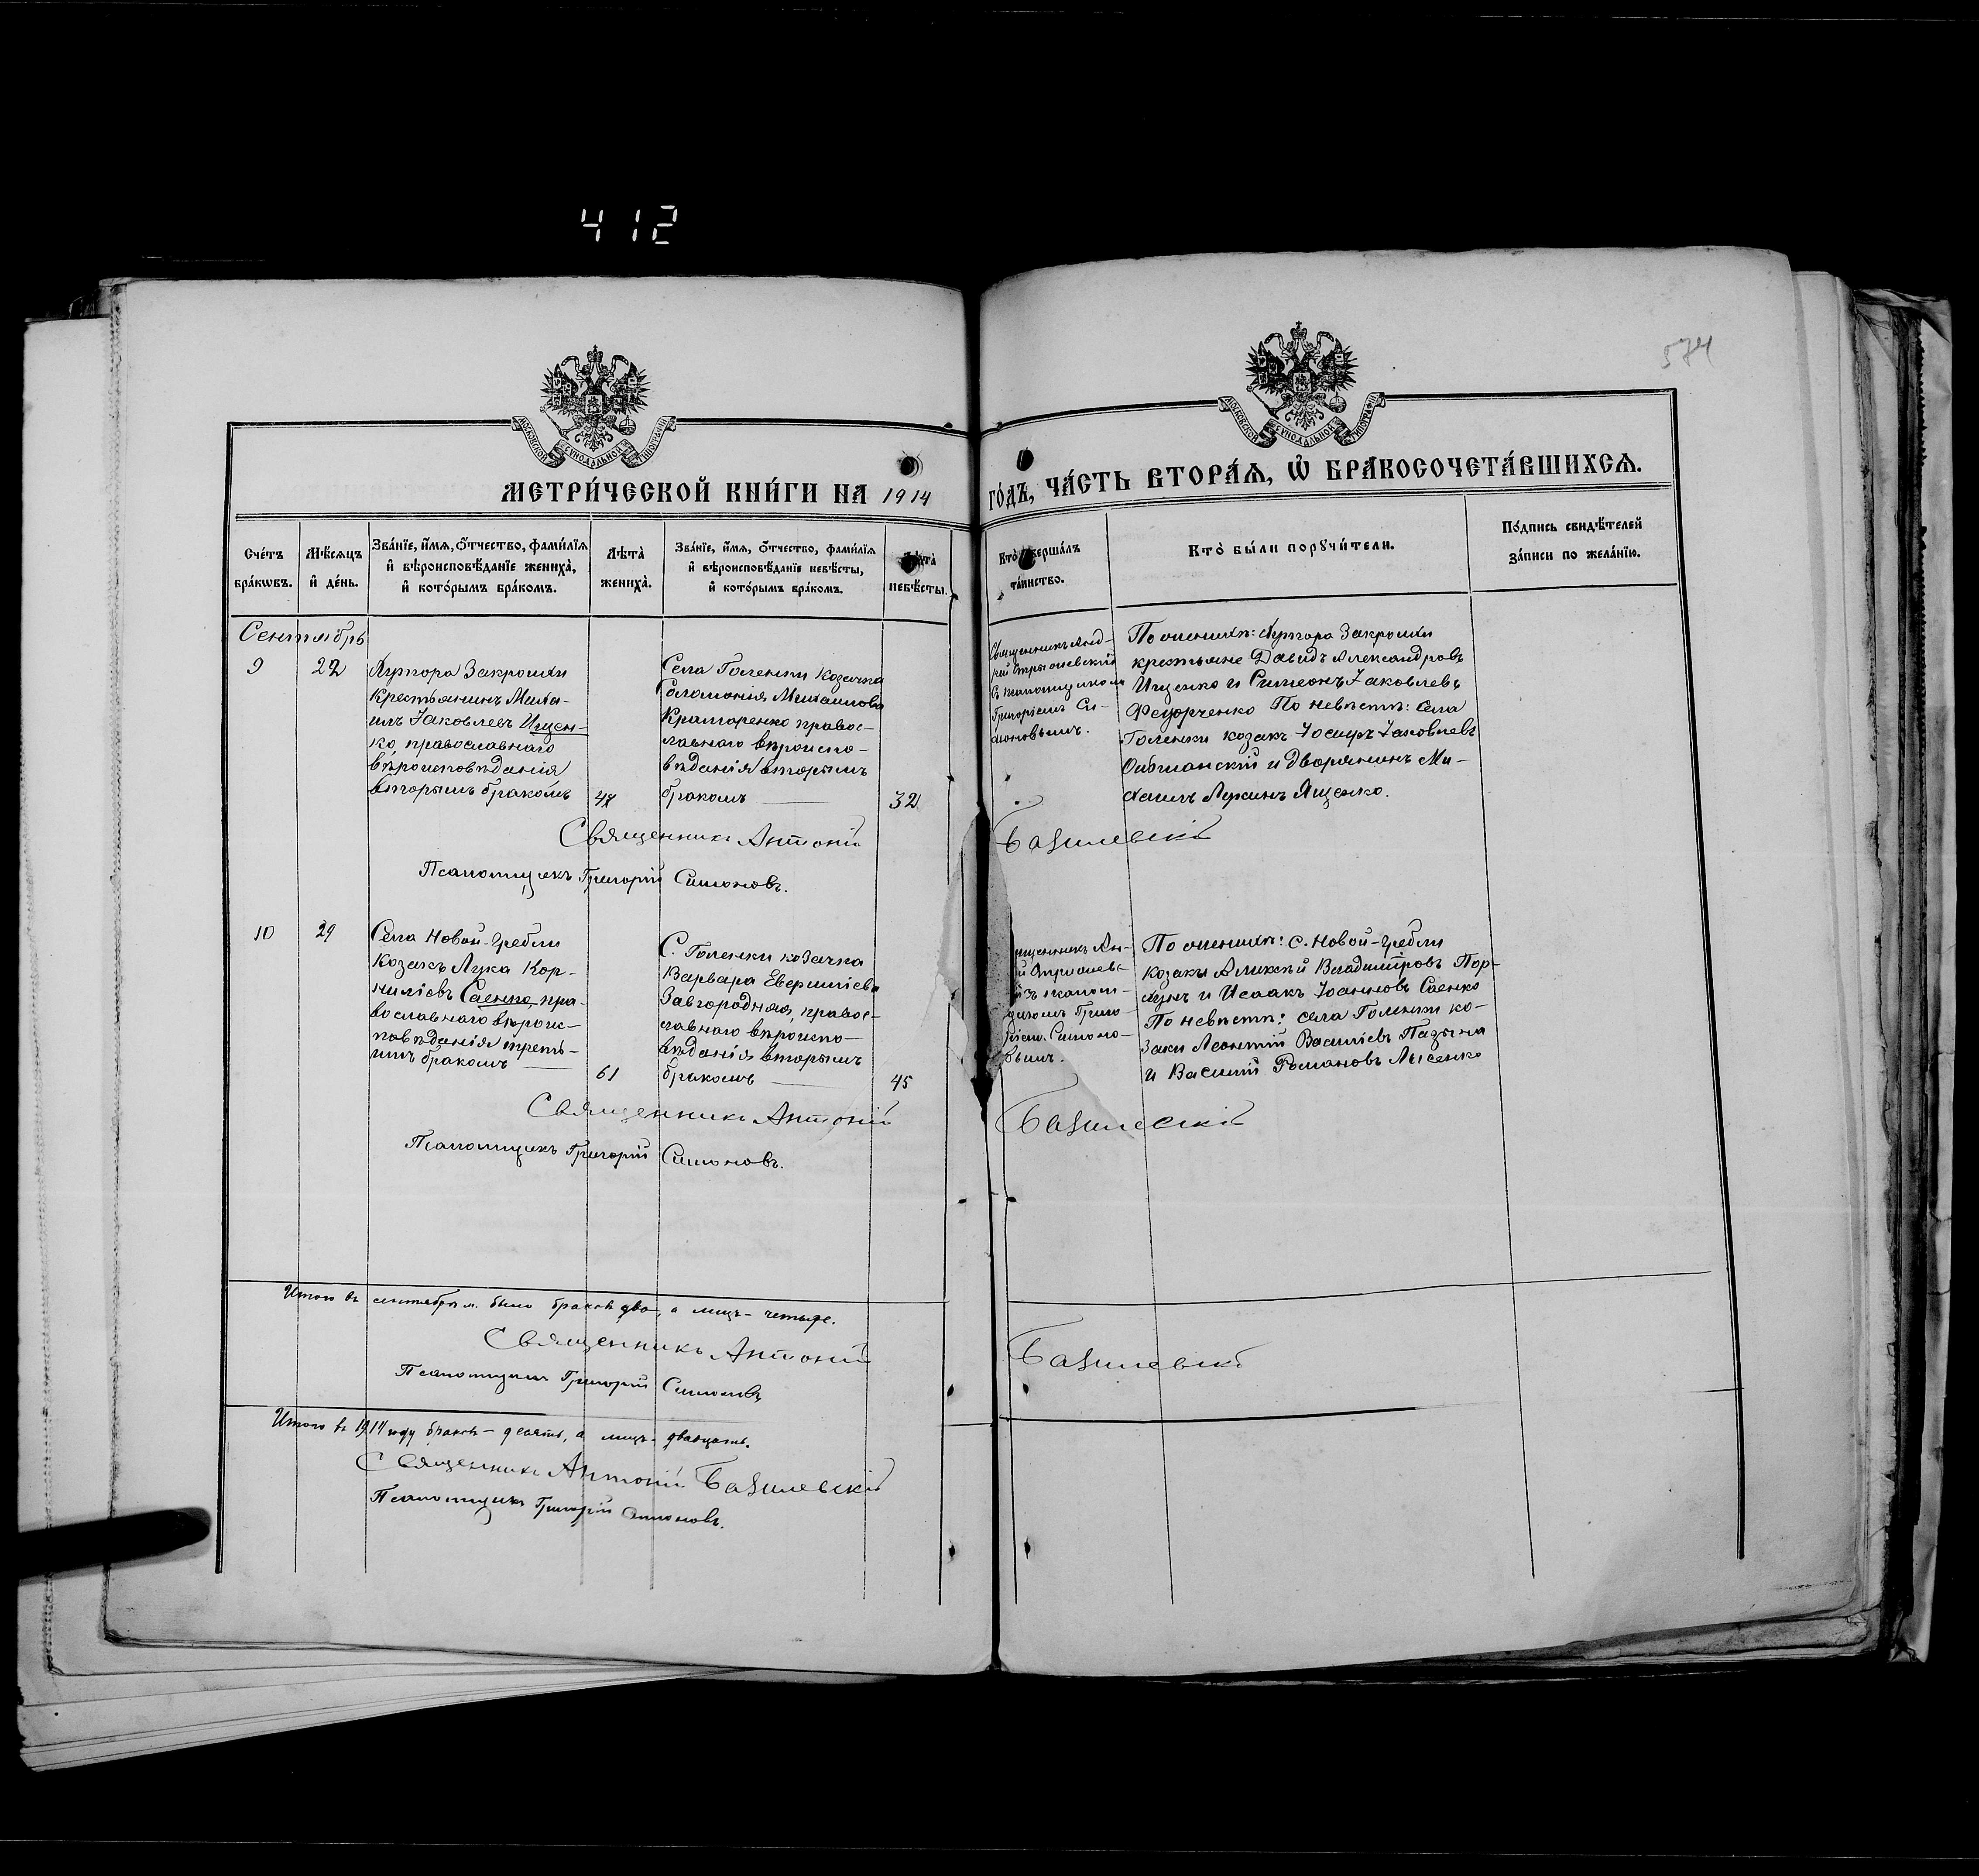 412
574
МОСКОВСКОЙ СУНОДАЛЬНОЙ ТИПОГРАФІИ
МОСКОВСКОЙ СУНОДАЛЬНОЙ ТИПОГРАФІИ
МЕТРИ́ЧЕСКОЙ КНИ́ГИ НА 1914 ГО́ДЪ, ЧА́СТЬ ВТОРА́Ѧ, Ѽ БРАКОСОЧЕТА́ВШИХСѦ.
Сче́тъ
бра́кѡвъ.
Мѣ́сяцъ
и҆ де́нь.
Зва́нїе, и҆́мѧ, ѻ҆́тчество, фами́лїѧ
и҆ вѣроисповѣ́данїе жениха̀,
и҆ кото́рымъ бра́комъ.
Лѣта̀
жениха̀.
Зва́нїе, и҆́мѧ, ѻ҆́тчество, фами́лїѧ
и҆ вѣроисповѣ́данїе невѣ́сты,
и҆ кото́рымъ бра́комъ.
Лѣта̀
невѣ́сты.
Кто̀ соверша́лъ
та́инство.
Кто̀ бы́ли порꙋчи́тели.
По́дпись свидѣ́телей
за́писи по жела́нїю.
Сентябрь
9
22
Хутора Закрошки
крестьянинъ Миха-
илъ Іаковлевъ Ищен-
ко, православнаго
вѣроисповѣданія
вторымъ бракомъ
47
Села Голенки козачка
Соломонія Михаилова
Крамаренко правос-
лавнаго вѣроиспо-
вѣданія вторымъ
бракомъ
32
Священникъ
Стрышевскій
съ псаломщикомъ
Григоріемъ Си-
моновымъ.
По женихѣ: Хутора Закрошки
крестьяне Давидъ Александровъ
Ищенко и Симеонъ Іаковлевъ
Федорченко По невѣстѣ: села
Голенки козакъ Іосифъ Іаковлевъ
и дворянинъ Ми-
хаилъ Ященко.
Священникъ Антоній Базилевскій
Псаломщикъ Григорій Симоновъ.
10
29
Села Новой-Гребли
козакъ Лука Кор-
ниліевъ Саенко, пра-
вославнаго вѣроис-
повѣданія треть-
имъ бракомъ
61
С. Голенки козачка
Варвара Евфиміева
Завгородняя, правос-
лавнаго вѣроиспо-
вѣданія вторымъ
бракомъ
45
ященникъ Ан-
псалом-
щикомъ Григо-
ріем. Симоно-
вымъ.
По женихѣ: с. Новой-Гребли
козаки Алексѣй Владиміровъ Пор-
хунъ и Исаакъ Іоанновъ Саенко
По невѣстѣ: села Голенки ко-
заки Леонтій Василіевъ Пазына
и Василій Романовъ Лысенко
Священникъ Антоній Базилевскій
Псаломщикъ Григорій Симоновъ.
Итого въ сентябрѣ м. было браковъ два, а лицъ – четыре.
Священникъ Антоній Базилевскій
Псаломщикъ Григорій Симоновъ
Итого въ 1914 году браковъ – десять, а лицъ – двадцать.
Священникъ Антоній Базилевскій
Псаломщикъ Григорій Симоновъ.